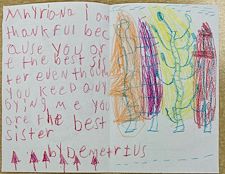 Mhyriona I am
thankful bec
ause you ar
e the best sis
ter even thoug
you keep ann
oying me you
are the best
sister
by Demetrius